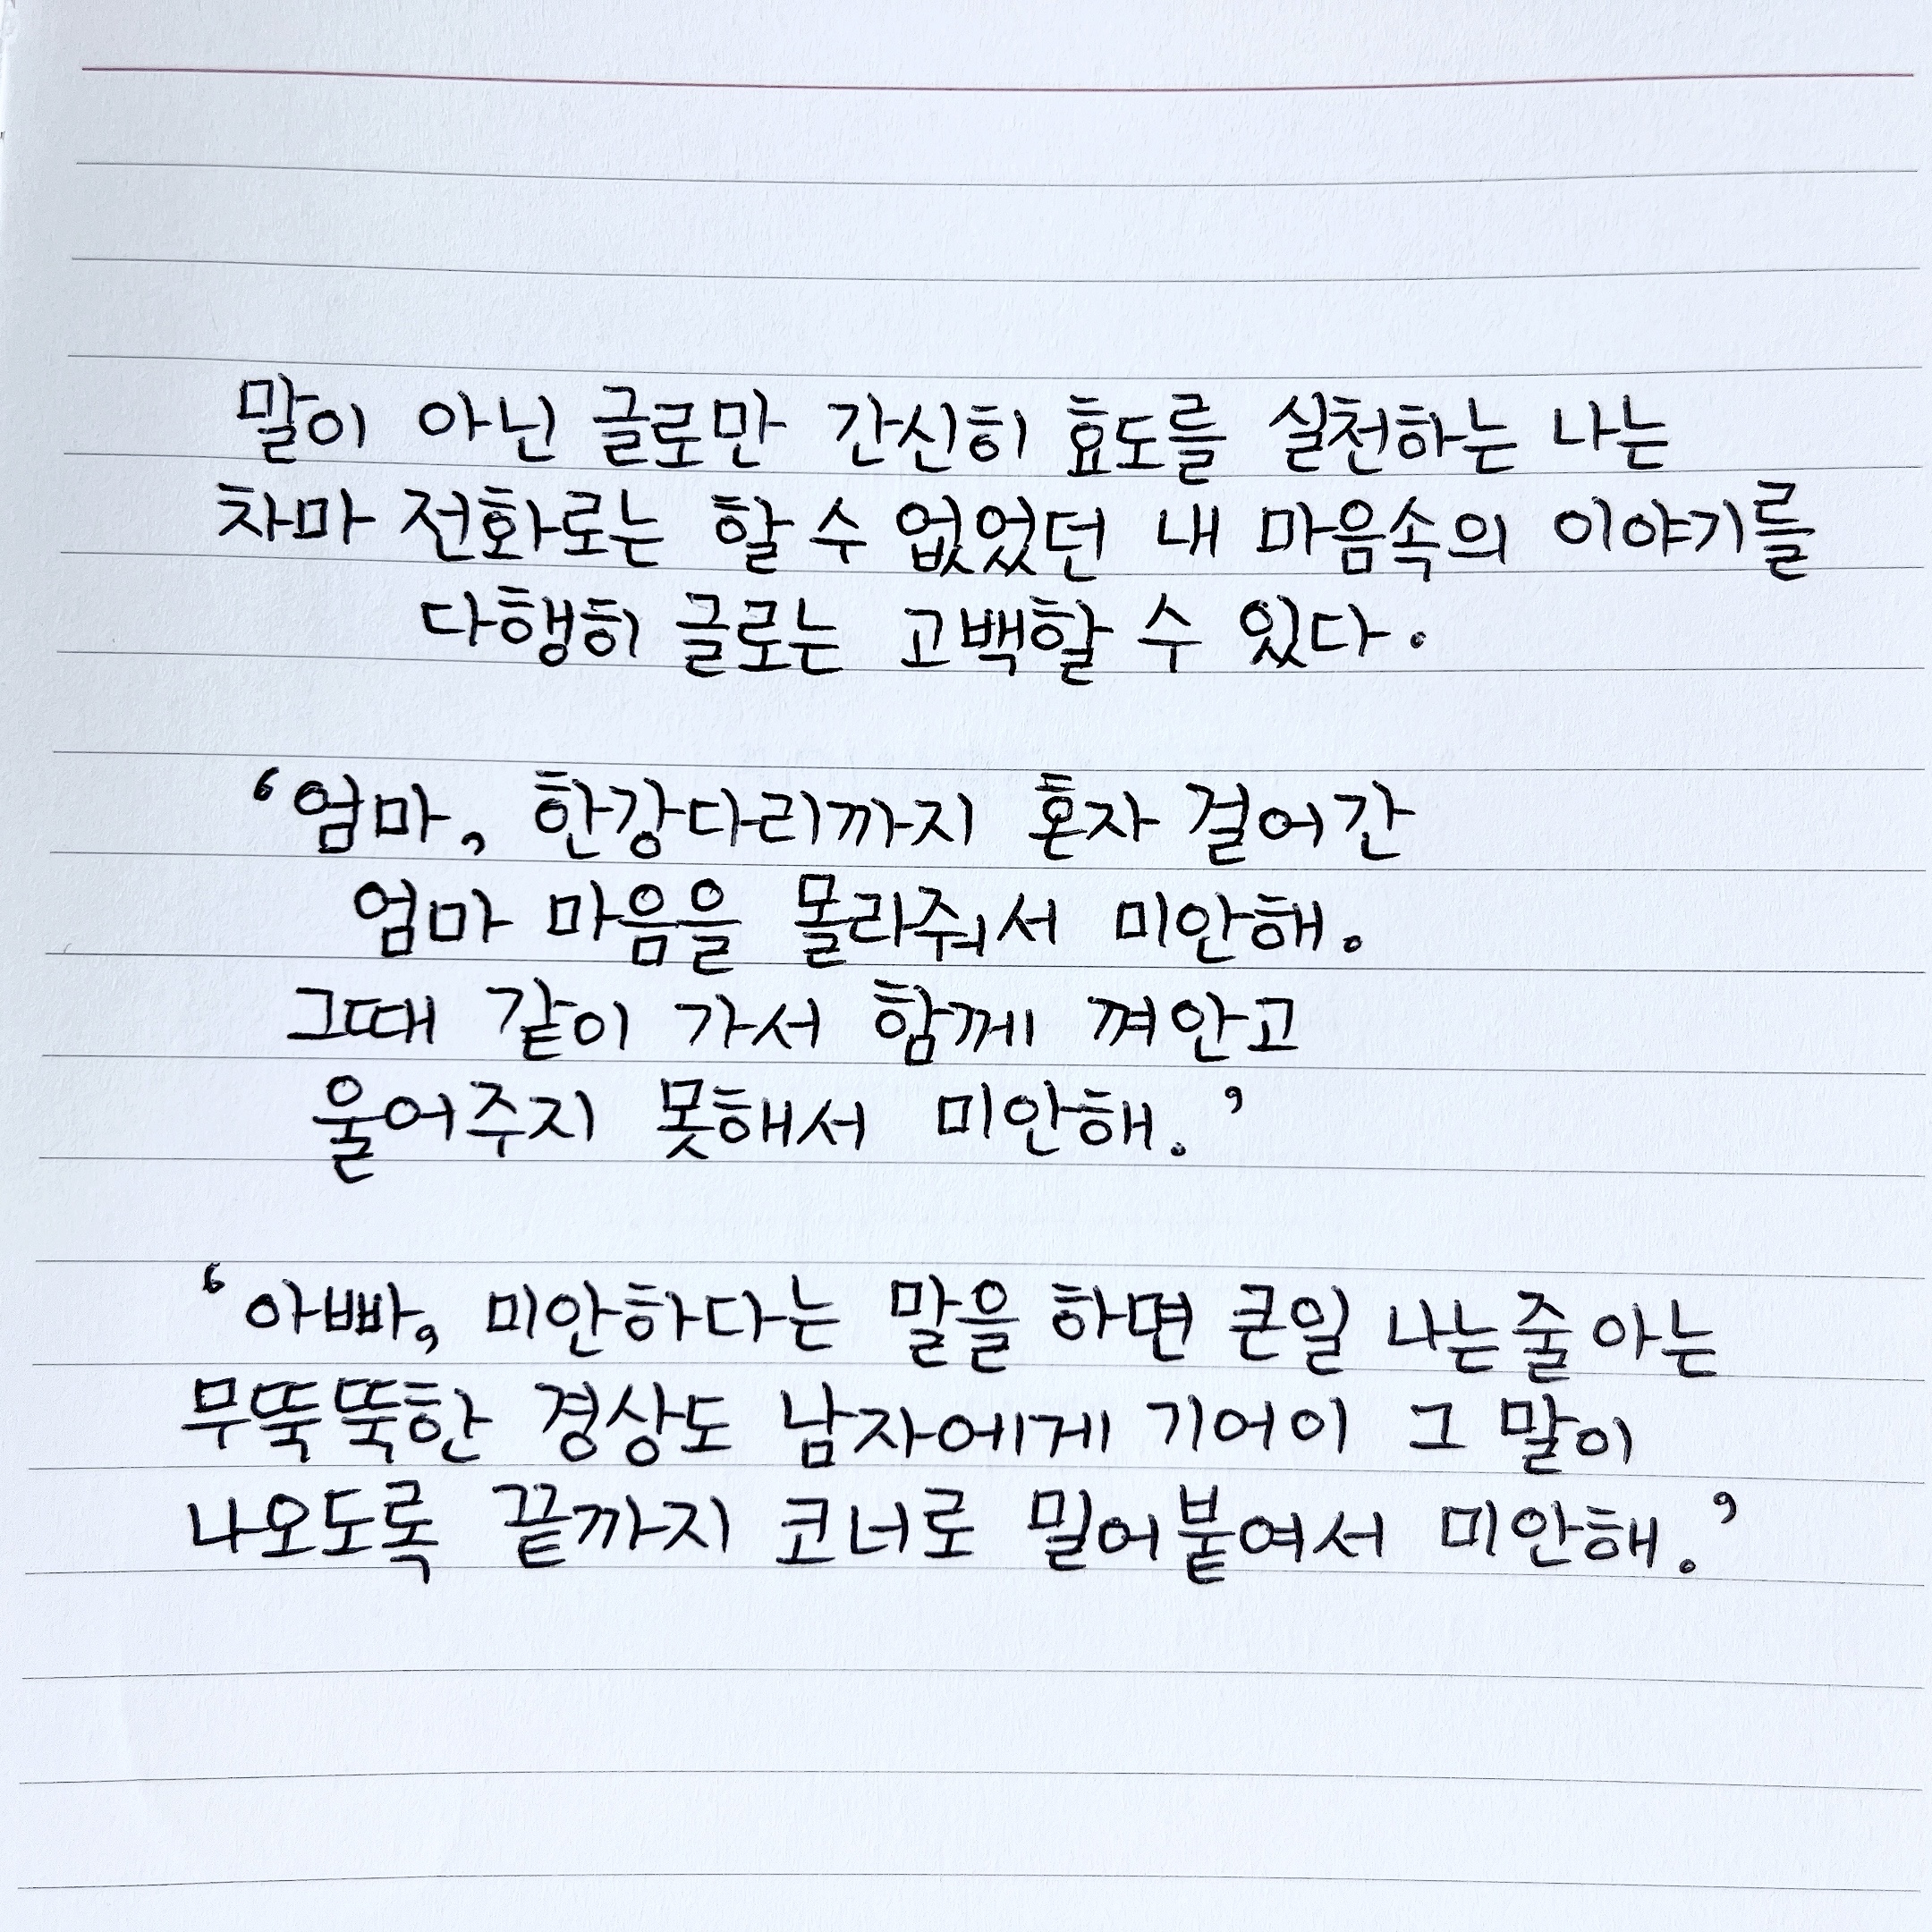 말이 아닌 글로만 간신히 효도를 실천하는 나는
차마 전화로는 할 수 없었던 내 마음속의 이야기를
다행히 글로는 고백할 수 있다.
‘엄마, 한강다리까지 혼자 걸어간
엄마 마음을 몰라줘서 미안해.
그때 같이 가서 함께 껴안고
울어주지 못해서 미안해.’
‘아빠, 미안하다는 말을 하면 큰일 나는줄 아는
무뚝뚝한 경상도 남자에게 기어이 그 말이
나오도록 끝까지 코너로 밀어붙여서 미안해.’